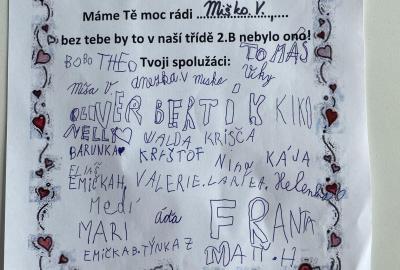 Máme Tě moc rádi ......Miško V.....,....
bez tebe by to v naší třídě 2.B nebylo ono!
BOBO THEO Tvoji spolužáci: TOMÁŠ
Míša V. anežka V miska Viky
OLIVER BERTÍK KIKI
NELLY WALDA KRIŠČA
BARUNKA KRYŠTOF Nina KÁJA
ELIÁŠ
EMIČKA H, VALERIE.
Medí áďa FRANTA
MARI
EMIČKA B. TÝNKA Z MATT.H